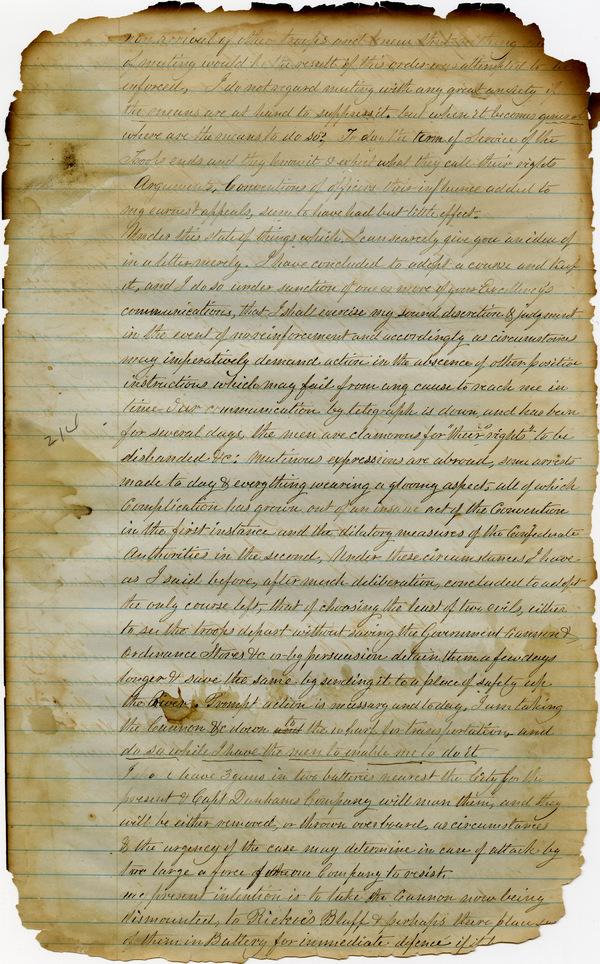 on arrival of other troops and knew that nothing
of mutiny would be the result if this order was attempted to be
enforced. I do not regard mutiny with any great anxiety if
the means are at hand to suppress it, but when it becomes general
where are the means to do so? To day the term of Service of the
Troops ends and they know it & insist what they call their rights
Arguments, Conventions of officers their influence added to
my earnest appeals, seem to have had but little effect.
Under this state of things which, I can scarcely give you an idea of
in a letter merely. I have concluded to adopt a course and
it, and I do so under sanction of one or more of your Excellency's
communications, that I shall exercise my sound discretion & judgement
in the event of no reinforcement and accordingly as circumstances
may imperatively demand action in the absence of other positive
instructions which may fail from any cause to reach me in
time. Our communication by telegraph is down, and has been
for several days, the men are clamorous for "their" "rights" to be
disbanded &c: Mutinous expressions are abroad, some arrests
made to day & everything wearing a gloomy aspect, all of which
Complication has grown out of an insane act of the Convention
in the first instance and the dilatory measures of the Confederate
Authorities in the second, Under these circumstances I have
as I said before, after much deliberation, concluded to adopt
the only course left, that of choosing the least of two evils, either
to see the troops depart without saving the Government Cannon &
Ordenance Stores &c or by persuasion detain them a few days
longer & save the same by sending it to a place of safety up
the River. Prompt action is necessary and to day, I am taking
the Cannon &c down to the wharf for transportation, and
do so while I have the men to enable me to do it
I have 3 guns in two batteries nearest the City for the
present & Capt Dunhams Company will man them, and they
will be either removed, or thrown overboard, as circumstances
& the urgency of the case may determine in case of attack by
two large a force for one Company to resist.
my present intention is to take the Cannon now being
dismounted, to Rickoe's Bluff & perhaps there place
of them in Battery for immediate defence if it